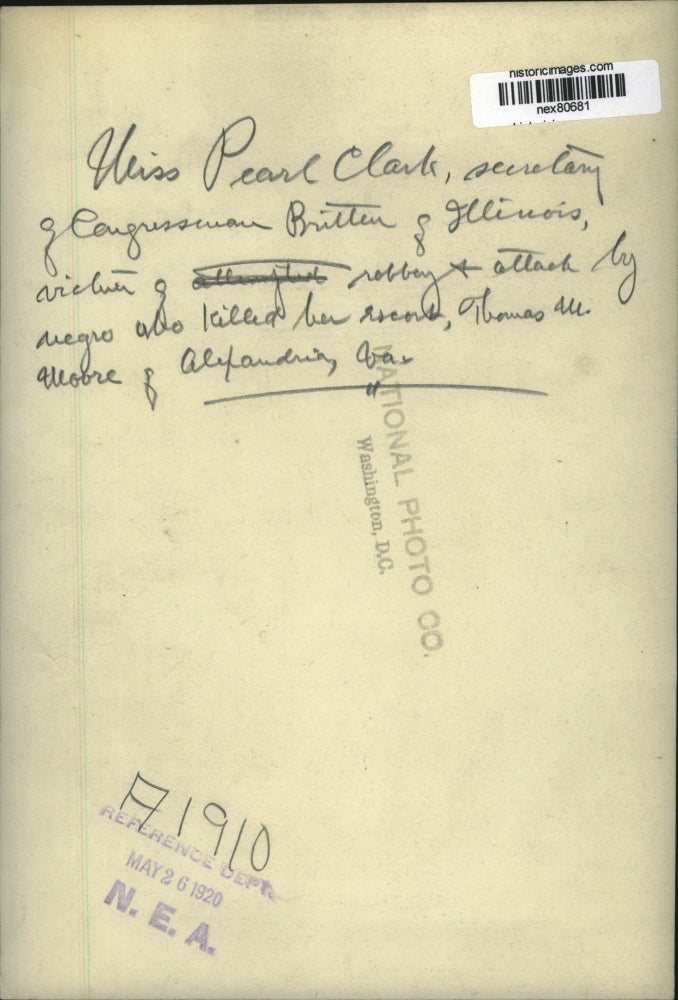 historicimages.com
nex80681
Miss Pearl Clark, secretary
of Congressman Britten of Illinois,
victim of attempted robbery & attack by
negro who killed her escort, Thomas M.
Moore of Alexandria, Va.
NATIONAL PHOTO CO.
Washington, D.C.
A1910
REFERENCE DEPT.
MAY 26 1920
N. E. A.